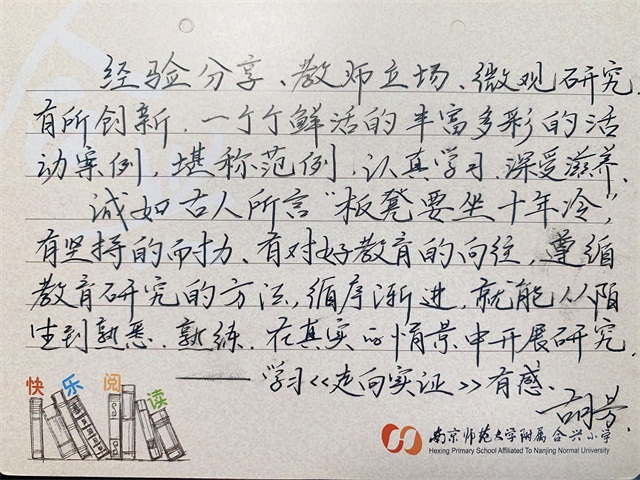 经验分享、教师立场、微观研究,
有所创新.一个个鲜活的丰富多彩的活
动案例,堪称范例,认真学习,深受滋养.
诚如古人所言“板凳要坐十年冷”,
有坚持的耐力、有对好教育的向往,遵循
教育研究的方法,循序渐进,就能从陌
生到熟悉.熟练.在真实的情景中开展研究.
——学习《走向实证》有感.
胡芳.
快乐阅读
南京师范大学附属合兴小学
Hexing Primary School Affiliated To Nanjing Normal University